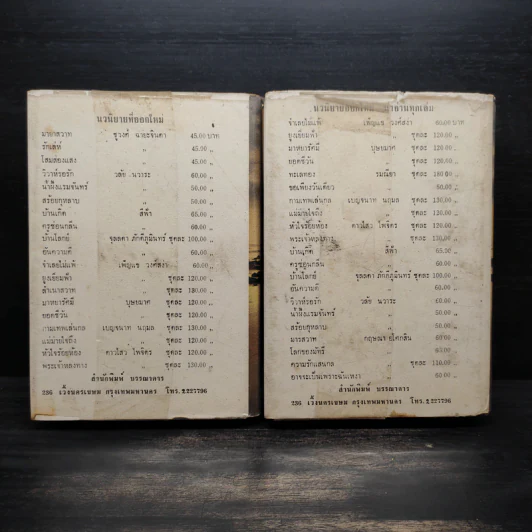 นวนิยายที่ออกใหม่
มายาสวาท ชูวงศ์ ฉายะจินดา 45.00 บาท
รักเล่ห์ „ 45.00 „
โสมส่องแสง „ 45.00 „
วิวาห์รอรัก วลัย นวาระ 60.00 „
น้ำผึ้งแรมจันทร์ „ 50.00 „
สร้อยกุหลาบ „ 60.00 „
บ้านเกิด สีฟ้า 65.00 „
ครูซ่อนกลิ่น „ 60.00 „
บ้านโลกย์ จุลลดา ภักดีภูมินทร์ ชุดละ 100.00 „
อันความดี „ 60.00 „
จำเลยไม่แพ้ เพ็ญแข วงศ์สง่า 60.00 „
ยูงเยี่ยมฟ้า „ ชุดละ 120.00 „
„ ชุดละ 120.00 „
มาหยารัศมี บุษยมาศ ชุดละ 120.00 „
ยอดชีวัน „ ชุดละ 120.00 „
กามเทพเล่นกล เบญจนาท นฤมล ชุดละ 130.00 „
แม่ม่ายใจถึง „ ชุดละ 120.00 „
หัวใจร้อยห้อง ดาวไสว ไพจิตร ชุดละ 120.00 „
พระเจ้าหลงทาง „ ชุดละ 130.00 „
สำนักพิมพ์ บรรณาคาร
236 เวิ้งนครเขษม กรุงเทพมหานคร โทร. 2227796
จำเลยไม่แพ้ เพ็ญแข วงศ์สง่า 60.00 „
ยูงเยี่ยมฟ้า „ ชุดละ 120.00 „
มาหยารัศมี บุษยมาศ ชุดละ 120.00 „
ยอดชีวัน „ ชุดละ 120.00 „
ทะเลทอง รมณียา ชุดละ
ขอเพียงวันเดียว „ 60.00 „
กามเทพเล่นกล เบญจนาท นฤมล ชุดละ 130.00 „
แม่ม่ายใจถึง „ ชุดละ 120.00 „
หัวใจร้อยห้อง ดาวไสว ไพจิตร ชุดละ 120.00 „
พระเจ้าหลงทาง „ ชุดละ 130.00 „
บ้านเกิด สีฟ้า 65.50 „
ครูซ่อนกลิ่น „ 60.00 „
บ้านโลกย์ จุลลดา ภักดีภูมินทร์ ชุดละ 100.00 „
อันความดี „ 60.00 „
วิวาห์รอรัก วลัย นวาระ 60.00 „
น้ำผึ้งแรมจันทร์ „ 50.00 „
สร้อยกุหลาบ „ 50.00 „
มารสวาท กฤษณา อโศกสิน 60.00 „
โลกของมัทรี „ 60.00 „
ความรักแสนกล „ ชุดละ „
อาจจะเป็นเพราะฉันเหงา „ 60.00 „
สำนักพิมพ์ บรรณาคาร
236 เวิ้งนครเขษม กรุงเทพมหานคร โทร. 2227796